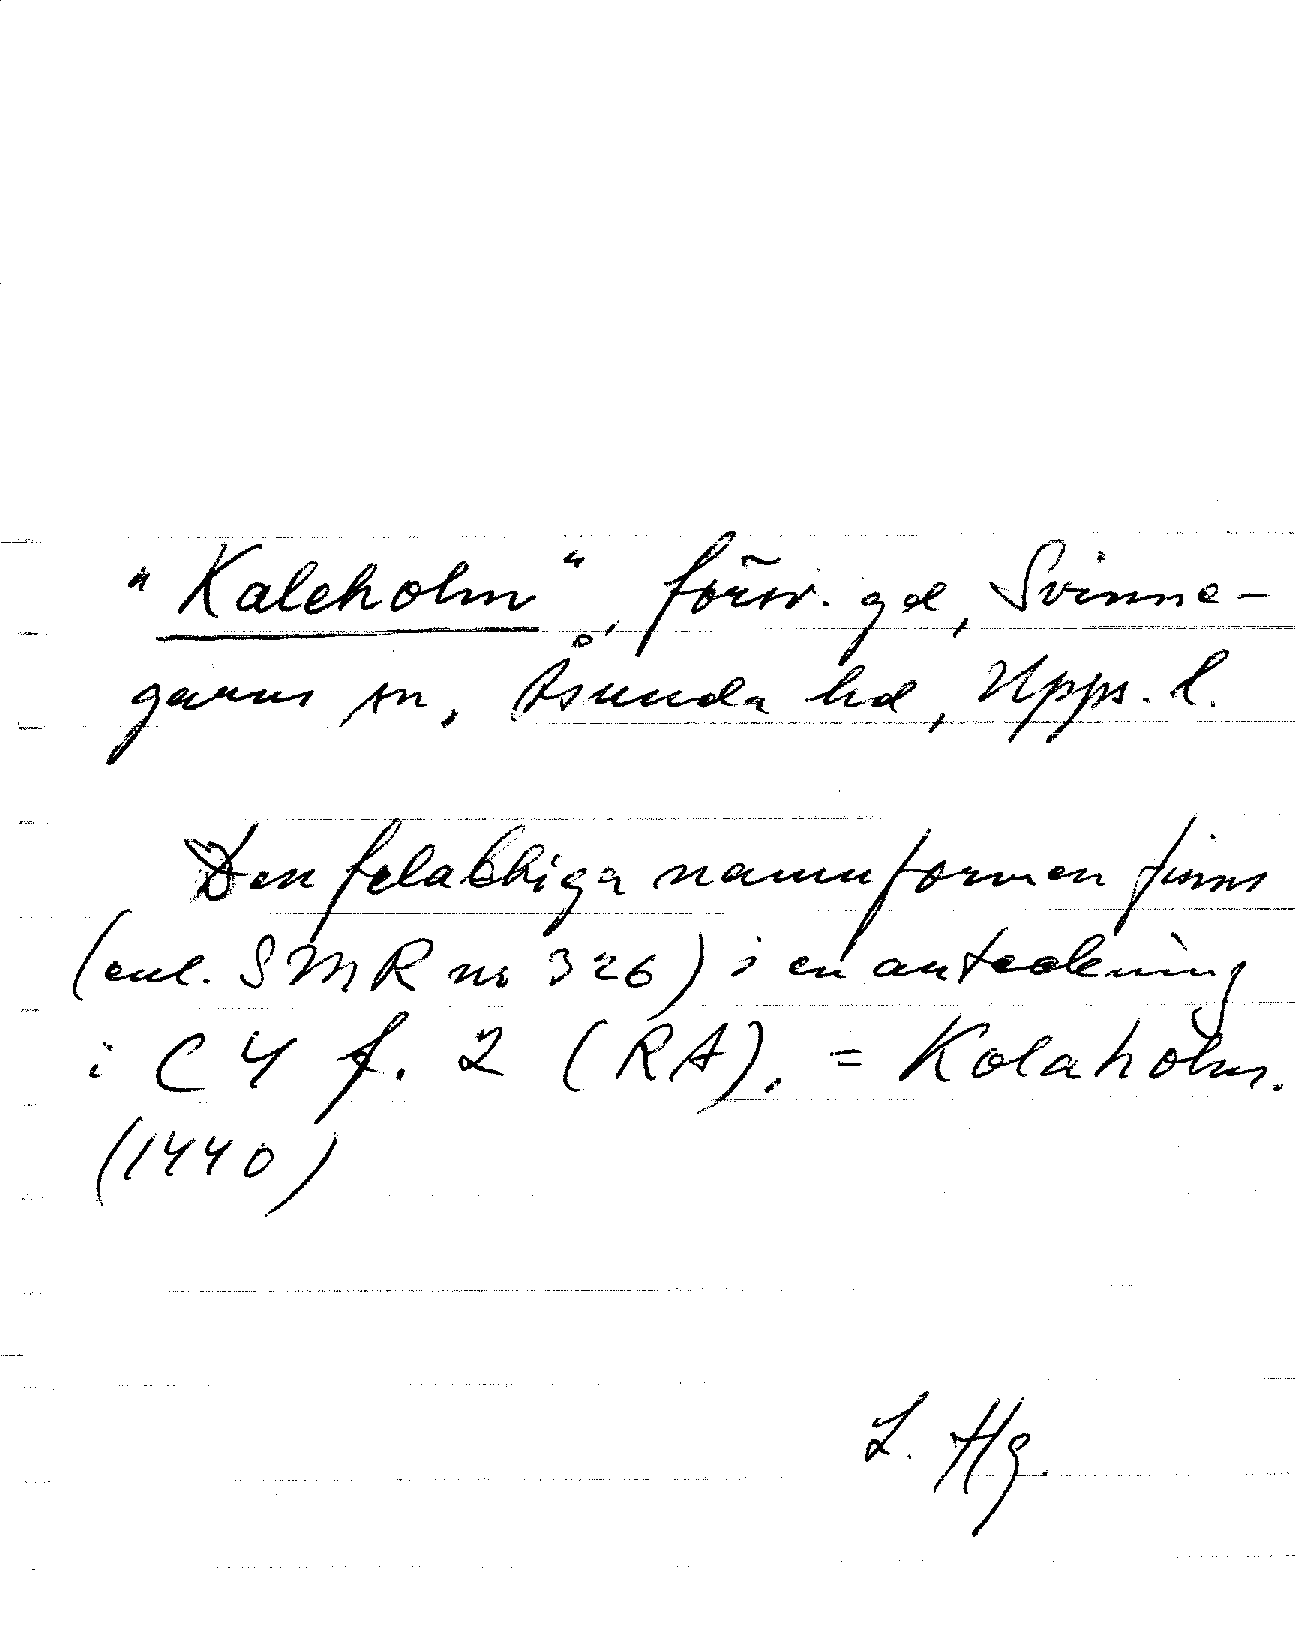 "Kaleholm", försv. gd, Svinne-
garns sn, Åsunda hd, Upps. l.
Den felaktiga namnformen finns
(enl. SMR nr 326) i en anteckning
i C 4 f. 2 (RA). = Kolaholm.
(1440)
L. Hg.